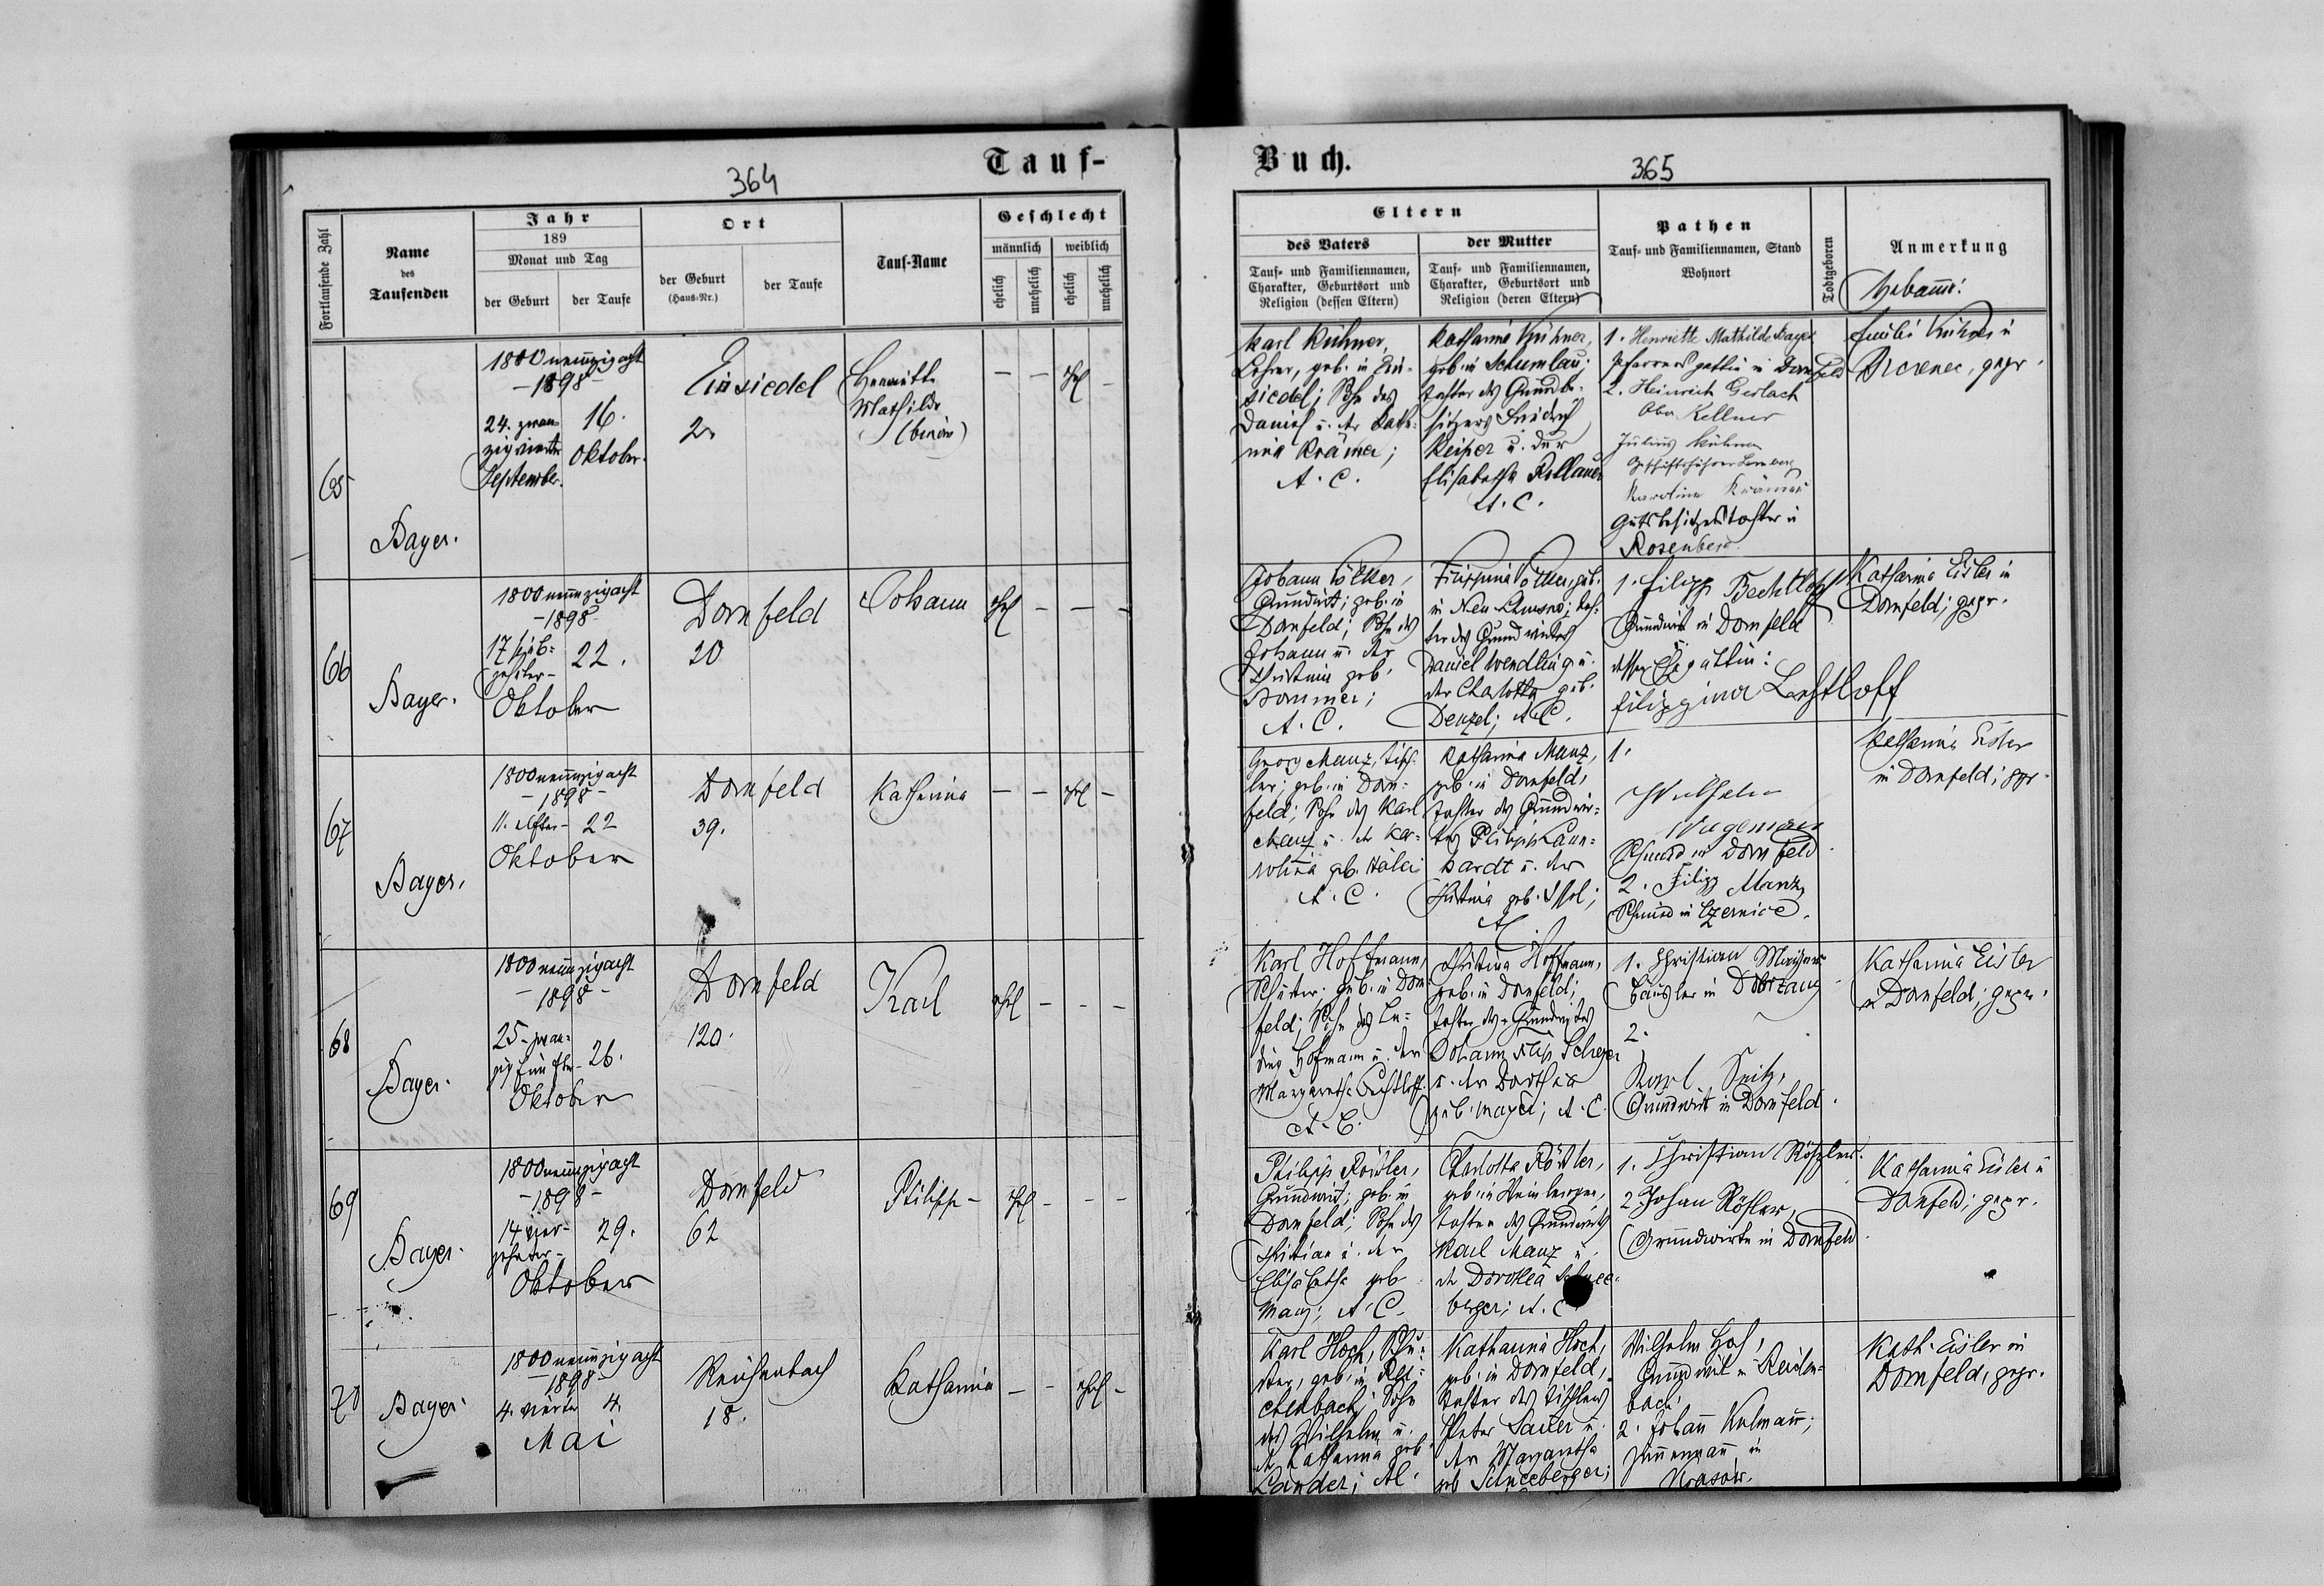 364
Tauf-
Fortlaufende Zahl
Name
des
Taufenden
Jahr
189
Monat und Tag
der Geburt
der Taufe
Ort
der Geburt
(Haus-Nr.)
der Taufe
Tauf-Name
Geschlecht
männlich
weiblich
ehelich
unehelich
ehelich
unehelich
65
Bayer.
1800neunzigacht
-1898-
24. zwan-
zigvierter
September.
16.
Oktober.
Einsiedel
2
Henriette
Mathilde
— — ehel —
66
Bayer.
1800neunzigacht
-1898-
17 sieb-
zehnter-
22.
Oktober
Dornfeld
20
Johann
ehel — — —
67
Bayer.
1800neunzigacht
-1898-
11. elfter- 22
Oktober
Dornfeld
39.
Katharina
— — ehel —
68
Bayer.
1800neunzigacht
-1898-
25-zwan-
zigfünfter- 26.
Oktober
Dornfeld
120.
Karl
ehel — — —
69
Bayer.
1800neunzigacht
-1898-
14 vier-
zehnter-
29.
Oktober
Dornfeld
62
Philipp
ehel — — —
70
Bayer.
1800neunzigacht
-1898-
4. vierter 4.
Mai
Reichenbach
18.
Katharina
— — ehel —
Buch.
365
Eltern
des Vaters
Tauf- und Familiennamen,
Charakter, Geburtsort und
Religion (dessen Eltern)
der Mutter
Tauf- und Familiennamen,
Charakter, Geburtsort und
Religion (deren Eltern)
Pathen
Tauf- und Familiennamen, Stand
Wohnort
Todtgeboren
Anmerkung
Hebamme:
Karl Kühner,
Lehrer, geb. in Ein-
siedel; Sohn des
Daniel u. der Katha-
rina Krämer;
A. C.
Katharina Kühner,
geb. in Schumlau;
Tochter des Grundbe-
sitzers Friedrich
u. der
Elisabetha
A. C.
1. Henriette Mathilde Bayer
Pfarrersgattin in Dornfeld
2. Heinrich Gerlach
Ober Kellner
Julius Kühner
Geschäftsführer Lemberg
Karoline Krämer
Gutsbesitzerstochter in
Rosenberg.
Kühner in
gepr.
Johann
Grundwirt; geb. in
Dornfeld; Sohn des
Johann u. der
Christina geb.
Sommer;
A. C.
Filippina geb.
in Neu-Chrusno; Toch-
ter des Grundwirtes
Daniel Wendling u.
der Charlotta geb.
Denzel; A. C.
1. Filipp Bechtloff
Grundwirt in Dornfeld
dessen Gattin:
Filippina Bechtloff
Katharina Eisler in
Dornfeld; gepr.
Georg Manz, Tisch-
ler; geb. in Dorn-
feld; Sohn des Karl
Manz u. der Ka-
rolina geb.
A. C.
Katharina Manz,
geb. in Dornfeld,
Tochter des Grundwir-
tes Philipp Laun-
hardt u. der
Christina geb.
1.
Wilhelm
Wagemann
Schmied in Dornfeld.
2. Filipp Manz,
Schmied in Czernice.
Katharina Eisler
in Dornfeld; gepr.
Karl Hoffmann,
Schuster; geb. in Dorn-
feld; Sohn des Lu-
dwig Hofmann u. der
Margaretha Bechtloff.
A. C.
Christina Hoffmann,
geb. in Dornfeld;
Tochter des Grundwirtes
Johann Filip Scherer
u. der Dorothea
geb. Mayer; A. C.
1. Christian
Häusler in
2.
Karl Seitz,
Grundwirt in Dornfeld.
Katharina Eisler
in Dornfeld; gepr.
Philipp Rösler,
Grundwirt; geb. in
Dornfeld; Sohn des
Christian u. der
Elisabetha geb.
Manz; A. C.
Charlotta Rösler,
geb. in Weinbergen,
Tochter des Grundwirts
Karl Manz u.
der Dorothea Schnee-
berger; A. C.
1. Christian Rösler.
2 Johan Rösler,
Grundwirte in Dornfeld.
Katharina Eisler in
Dornfeld; gepr.
Karl Hoch, Schu-
ster, geb. in Rei-
chenbach; Sohn
des Wilhelm u.
der Katharina geb.
Lander; AC.
Katharina Hoch,
geb. in Dornfeld,
Tochter des Tischlers
Peter Sauer u.
der Margaretha
geb. Schneeberger;
Wilhelm Hoch,
Grundwirt in Reichen-
bach;
2. Johann Kulmann;
Zimmermann in
Krasow.
Kath. Eisler in
Dornfeld, gepr.